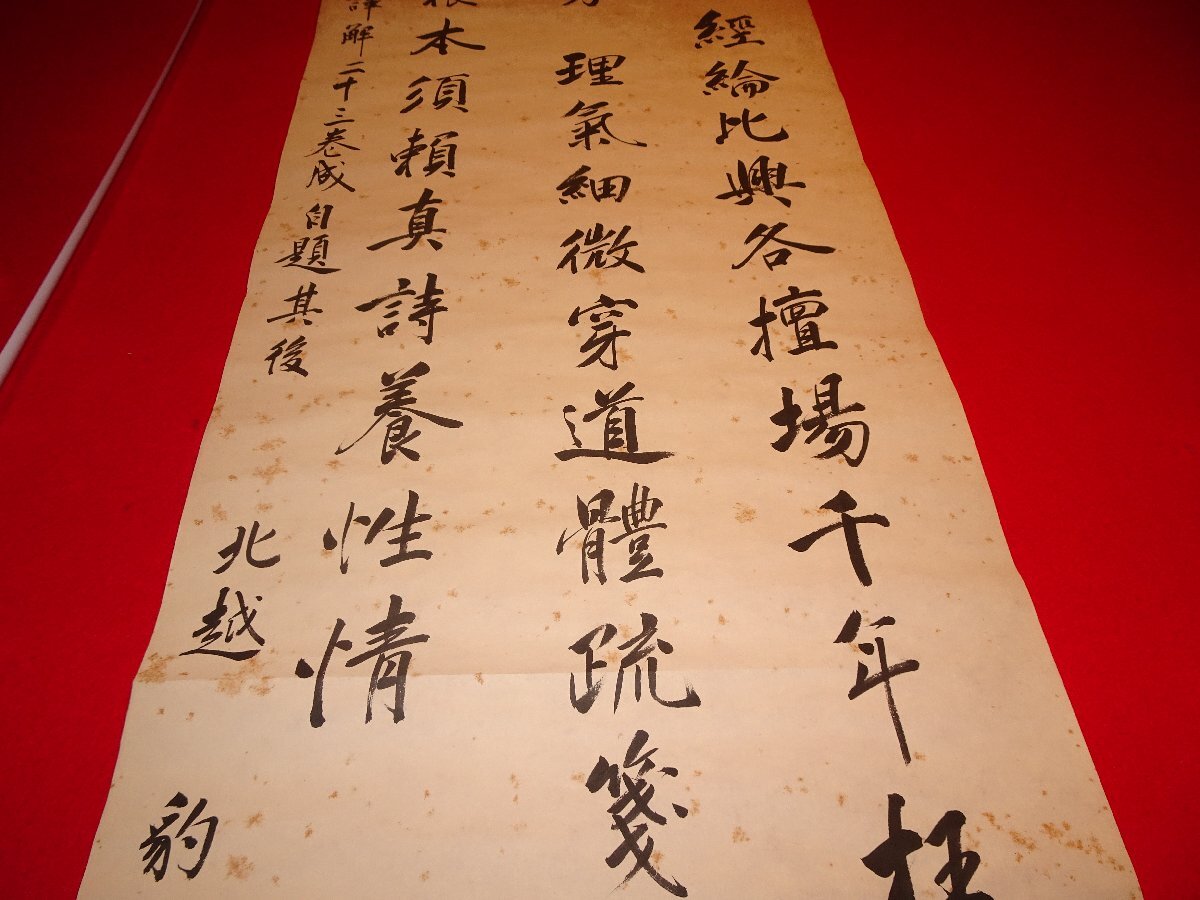 經綸比興各擅場千年枉
理氣細微穿道體疏箋
本須賴真詩養性情
解二十三卷成自題其後
北越 豹